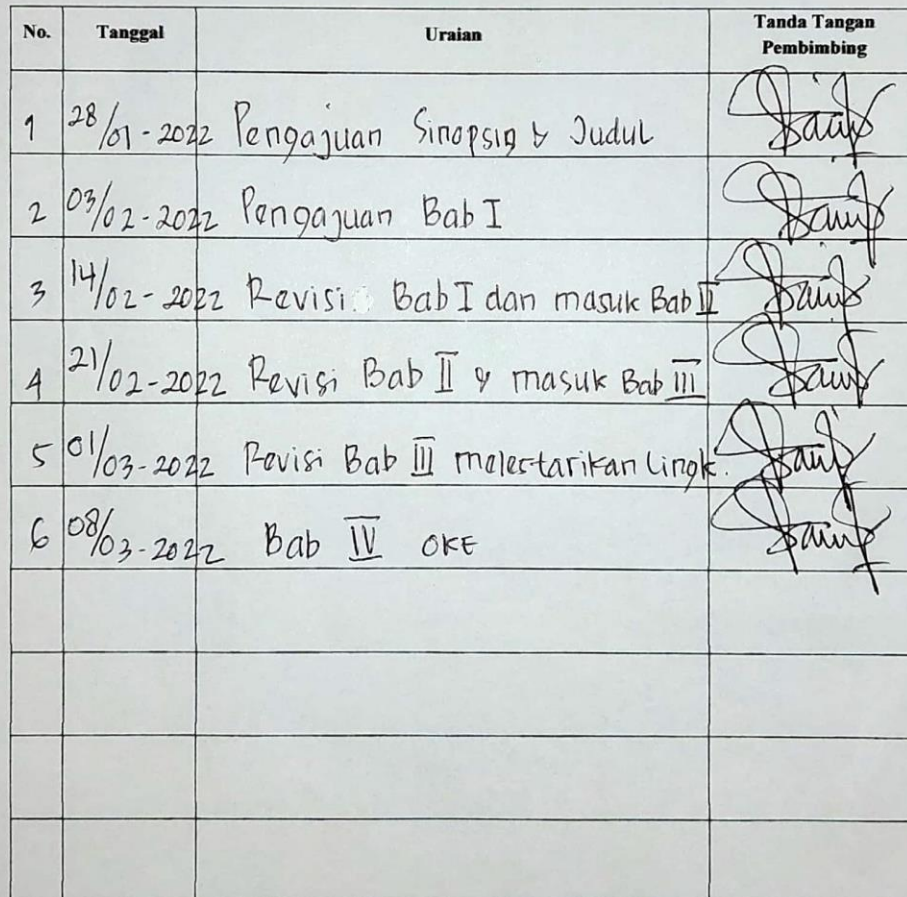 No. Tanggal Uraian Tanda Tangan Pembimbing
1 28/01-2022 Pengajuan Sinopsis & Judul
2 03/02-2022 Pengajuan Bab I
3 14/02-2022 Revisi Bab I dan masuk Bab II
4 21/02-2022 Revisi Bab II & masuk Bab III
5 01/03-2022 Revisi Bab III melestarikan Lingk.
6 08/03-2022 Bab IV OKE